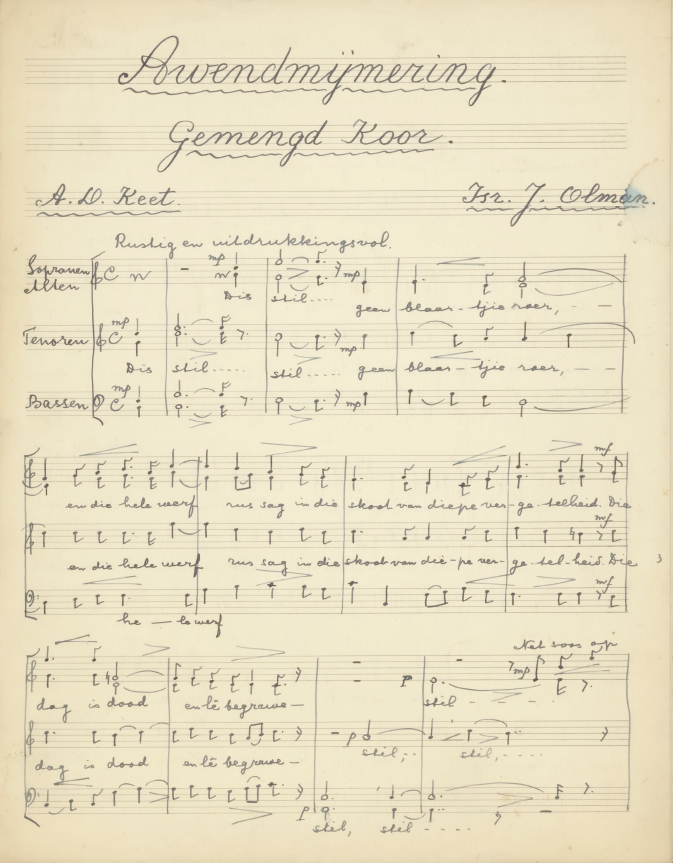 Awendmijmering.
Gemengd Koor.
A. D. Keet.
Isr. J. Olman.
Rustig en uitdrukkingsvol.
Sopranen
Alten
mp
mp
Dis stil.... geen blaar-tjie roer, — —
Tenoren
mp
mp
Dis stil..... stil..... geen blaar-tjie roer, — —
Bassen
mp
mp
mf
en die hele werf rus sag in die skoot van diepe ver-ge-telheid. Die
mf
en die hele werf rus sag in die skoot van die-pe ver-ge-tel-heid. Die
mf
he — le werf
Net soos op
mp
p
dag is dood en lê begrawe — stil - - -
p
dag is dood en lê begrawe — stil,.. stil,....
p
stil, stil ----